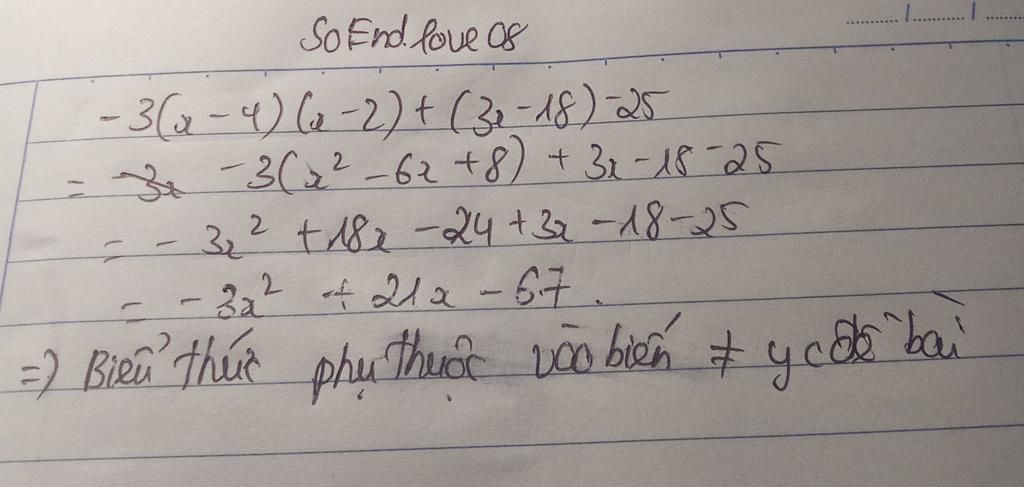 SoEnd.love08
-3(x-4)(x-2)+(3x-18)-25
= -3x -3(x² -6x +8) + 3x -18 -25
= - 3x² +18x -24 +3x -18 -25
= -3x² + 21x - 67.
=> Biểu thức phụ thuộc vào biến ≠ yc đề bài